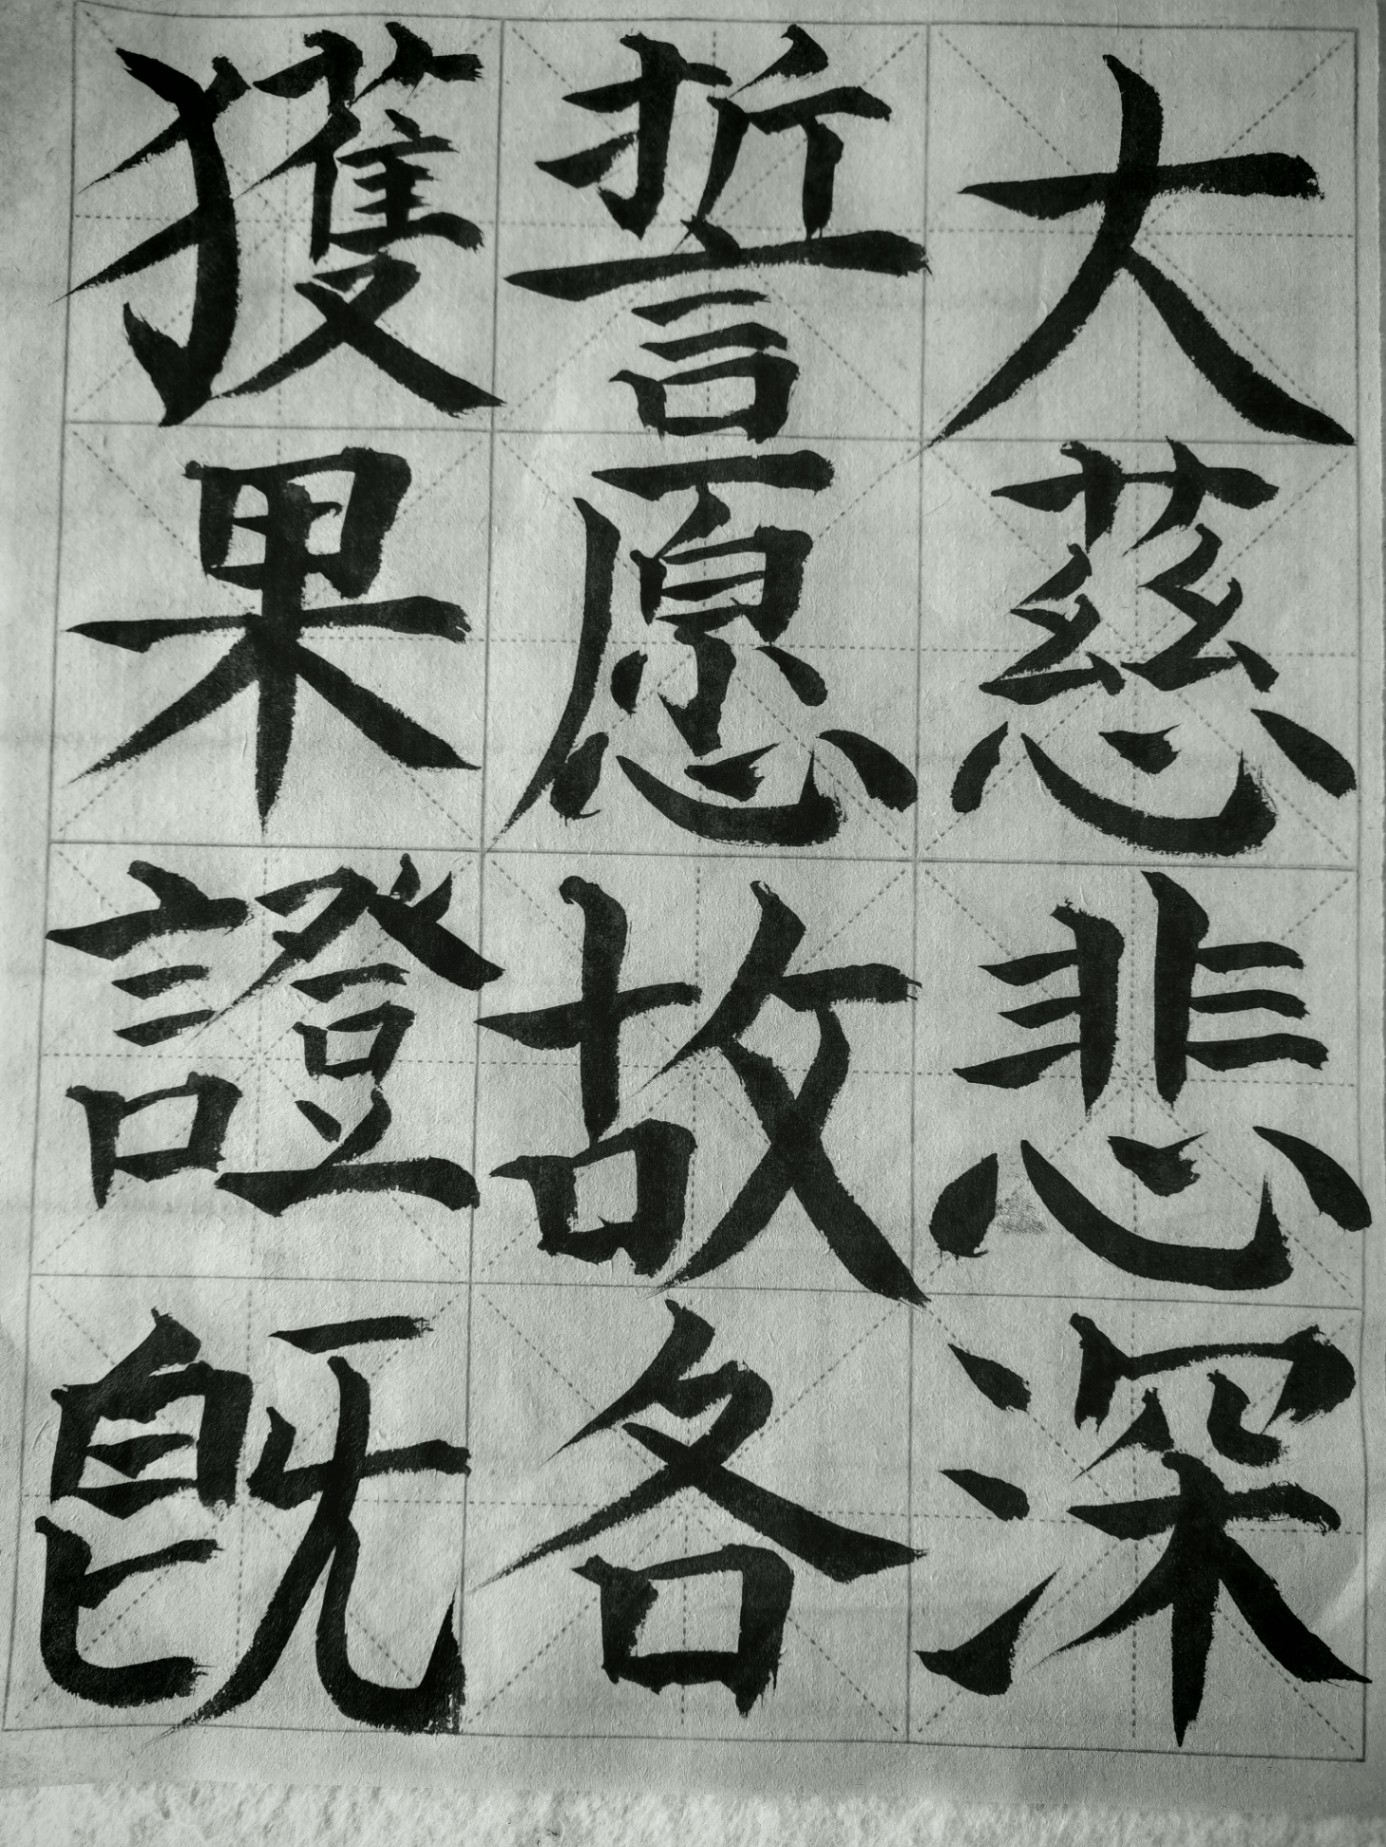 大慈悲深
誓愿故各
獲果證既